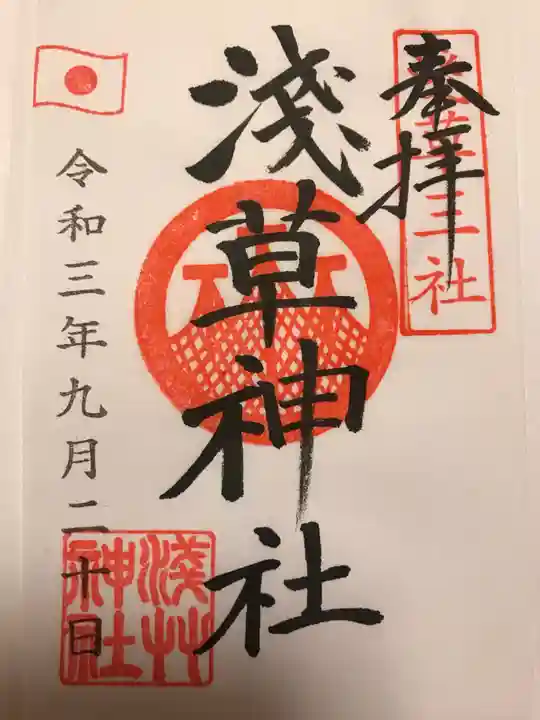 奉拝
淺草三社
淺草神社
令和三年九月二十日
淺艸神社